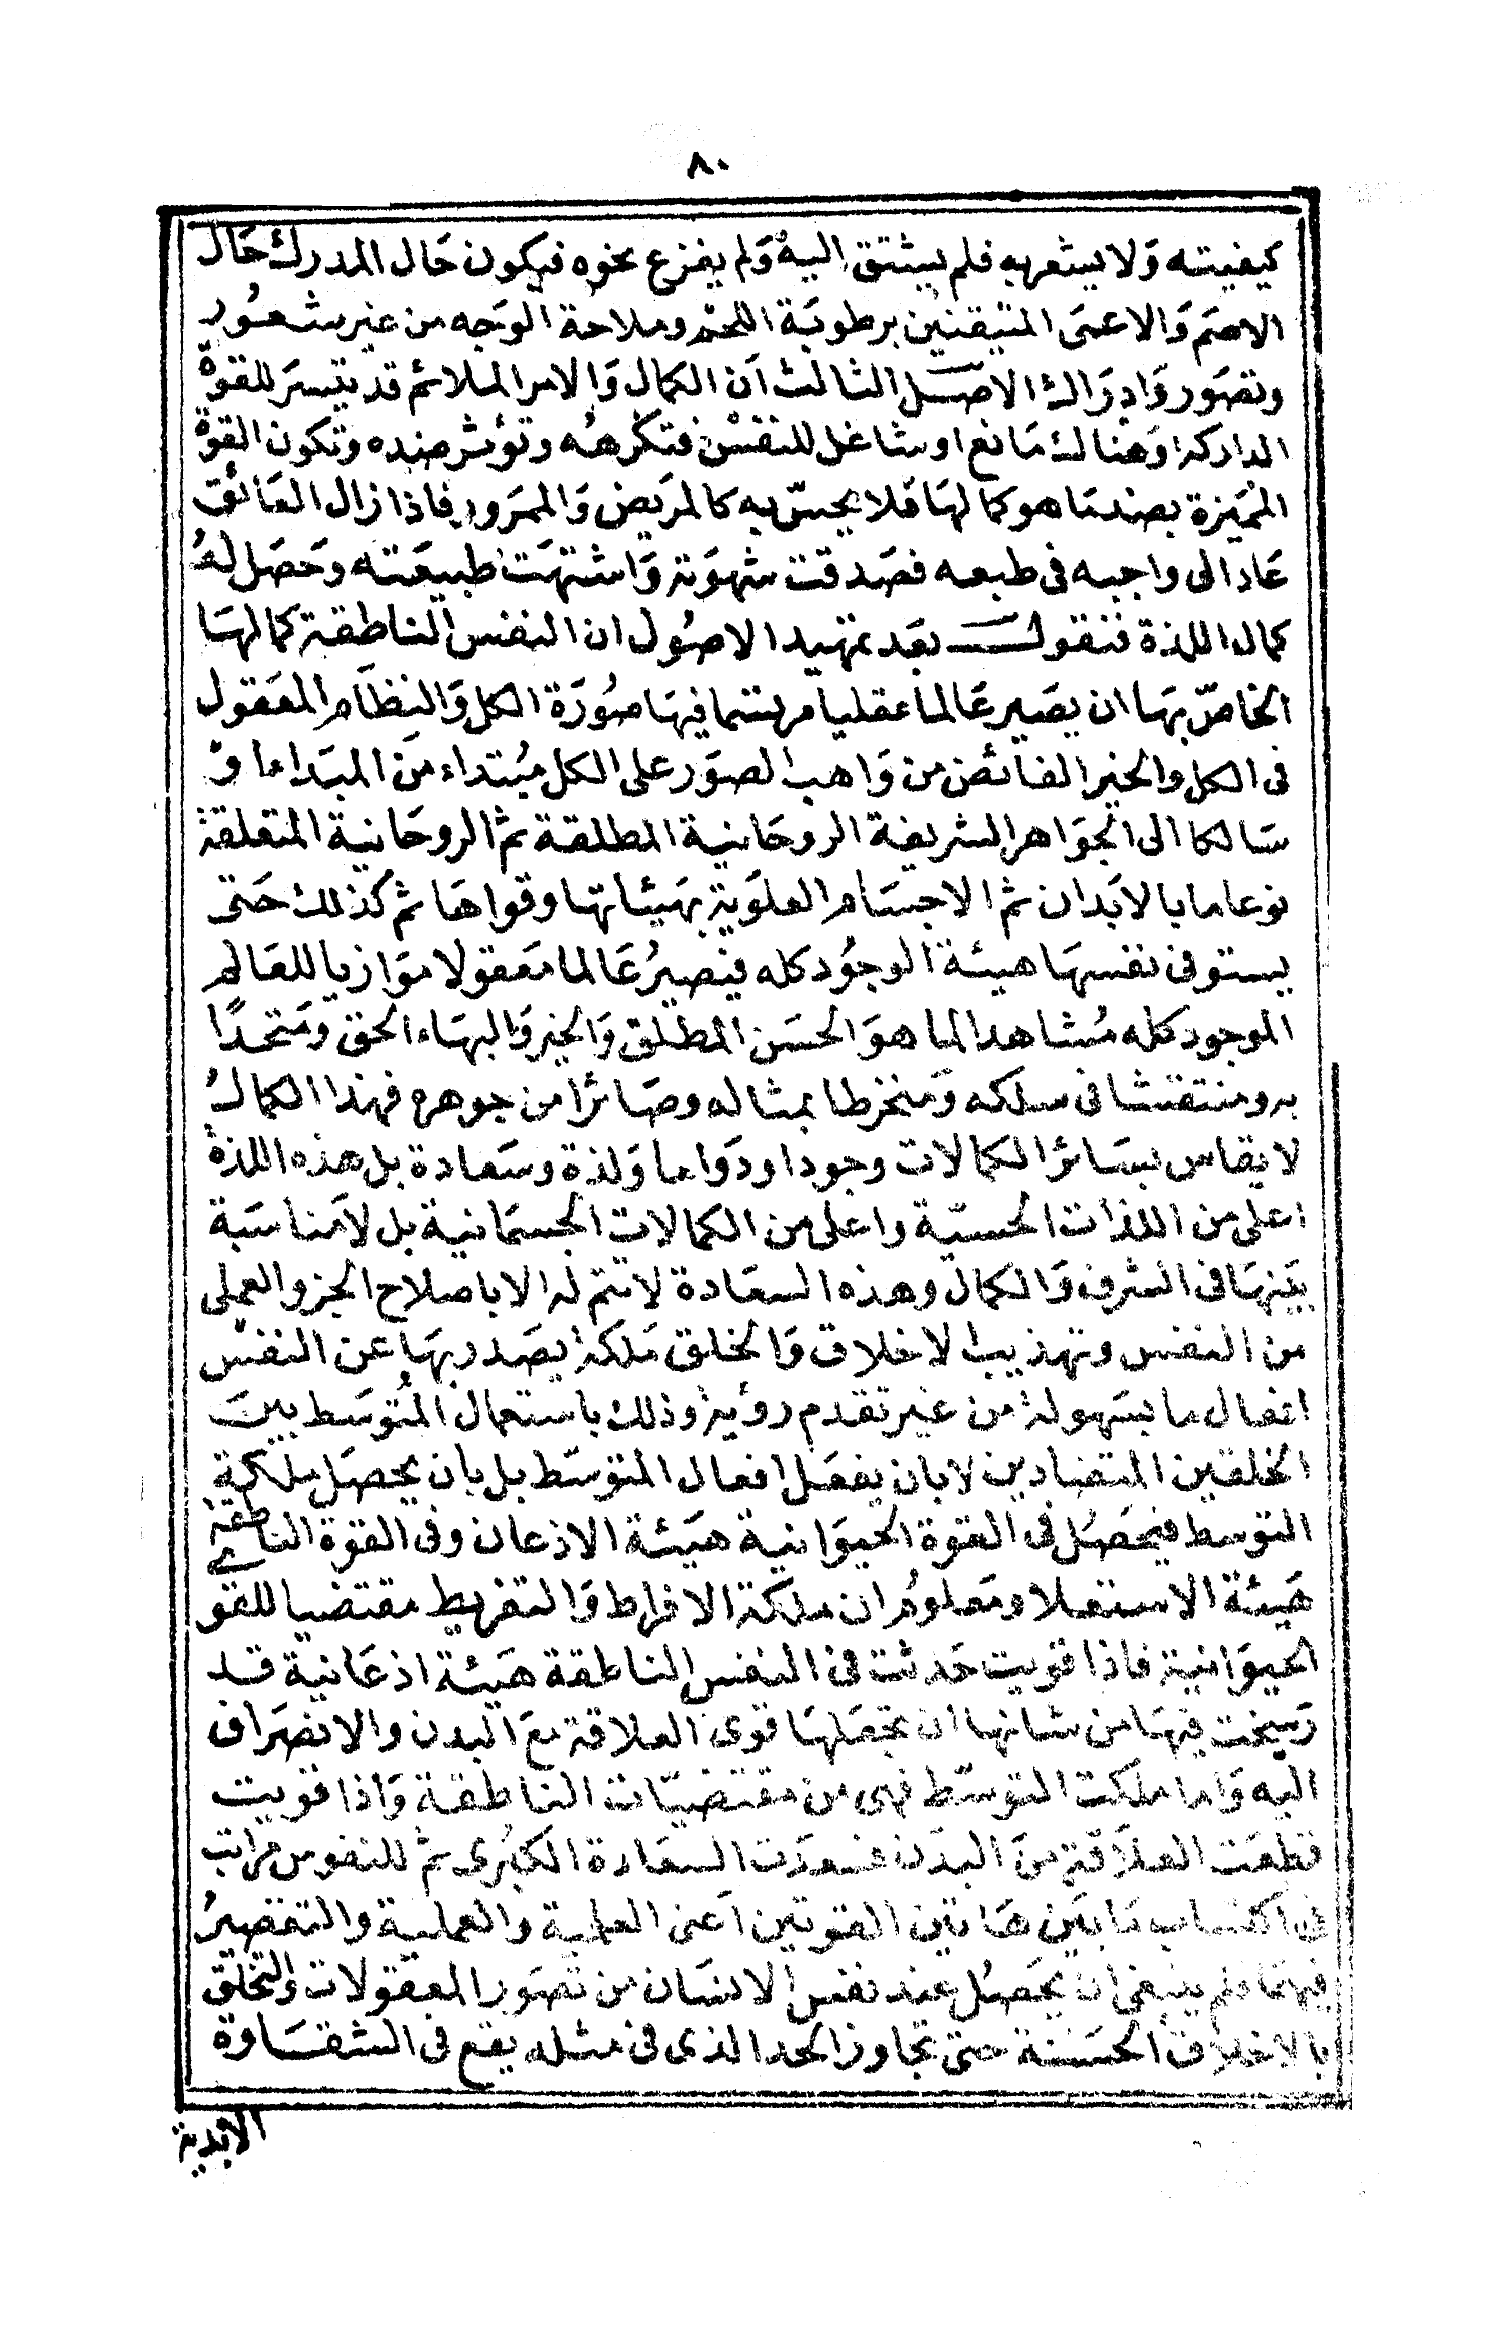 ٨٠
كيفيته وَلا يشعر به فلم يشتق اليهْ وَلم يفزع نحوه فيكون حَال المدرك حَال
الاصَم وَالاعمَى المتيقنين برطوبَة اللحم وملاحة الوَجه من غير شعُور
وتصَور وَادرَاك الاصَل الثالث اَن الكمال وَالامر الملائم قد يتيسَر للقوّة
الداركة وَهناك مَانع او شاغل للنفسْ فتكرهُه وتؤثر ضده وتكون القوة
الممَيزة بضد مَا هو كمالهَا فلا يحسّ به كالمرَيض وَالممَرور فاذا زال العَائق
عَاد الى واجبه فى طبعه فصَدقت شهوَته وَاشتهَت طبيعَته وحَصَل لهُ
كمال اللذة فنقول بعَد تمهيد الاصُول ان النفس الناطقة كمالهَا
الخاصّ بهَا ان يصَير عَالما عقليا مرتسما فيهَا صُورَة الكل وَالنظَام المعَقول
فى الكل والخير الفائض من وَاهب الصوَر على الكل مُبتداء منَ المبَداما وْ
سَالكا الى الجوَاهر الشريفة الروحَانية المطلقة ثم الروحَانية المتعلقة
نوعا ما بالابَدان ثم الاجسَام العلوَية بهَيئاتها وقواهَا ثم كذلك حَتى
يستوفى نفسهَا هيئة الوجوُد كله فيَصيرُ عَالما معَقولا موَازيا للعَالم
الموجود كله مُشاهدا لما هوَ الحسَن المطلق وَالخير وَالبهَاء الحق ومَتحدًا
به ومنتقشا فى سلكه وَمنخرطا بمثاله وصَائرًا من جوهره فهذا الكمالُ
لا يقاس بسَائر الكمالات وجودا ودوَاما وَلذة وسَعادة بل هذه اللذة
اعلى من اللذات الحسيّة واعلى من الكمالات الجسمَانية بل لا مَناسَبة
بيَنهَا فى الشرف وَالكمال وهذه السعَادة لا تتم له الا باصلاح الجزو العملى
من النفس وتهذيب الاخلاق وَالخلق مَلكة يصَدر بهَا عن النفسْ
افعال ما بسَهولة من غير تقدم روُية وذلك باستعمال المُتوسَط بينَ
الخلقين المتضادين لا بان يفعَل افعال المتوسّط بل بان يحصَل ملكة
التوسط فيحَصُل فى القوة الحيوَانية هيَئة الاذعان وفى القوة الناطقة
هَيئة الاستعلا ومَعلومُ ان ملكة الافراط وَالتفريط مقتضيا للقو
الحيوَانية فاذا قويت حَدثت فى النفس الناطقة هيَئة اذعَانية قد
رَسخت فيهَا من شانها ان تجعَلهَا قوى العلاقة معَ البدن والانصَراف
اليه وَاما ملكت التوسّط فهى من مقتضيّات الناطقة وَاذا قويت
قطعَت العلاَقة منَ البدَن فسعدَت السعَادة الكبُرى ثم للنفوس مراتب
فى اكتساب مَا بيَن هَاتين القوتين اَعنى العلمية والعملية والتقصيرُ
فيهمَا فلم ينبغى ان يحَصُل عند نفس الانسَان من تصَور المعقولات والتخلق
بالاخلاق الحسَنة حتى تجاوز الحد الذى فى مثله يقع فى الشقسَاوة
الابَدية